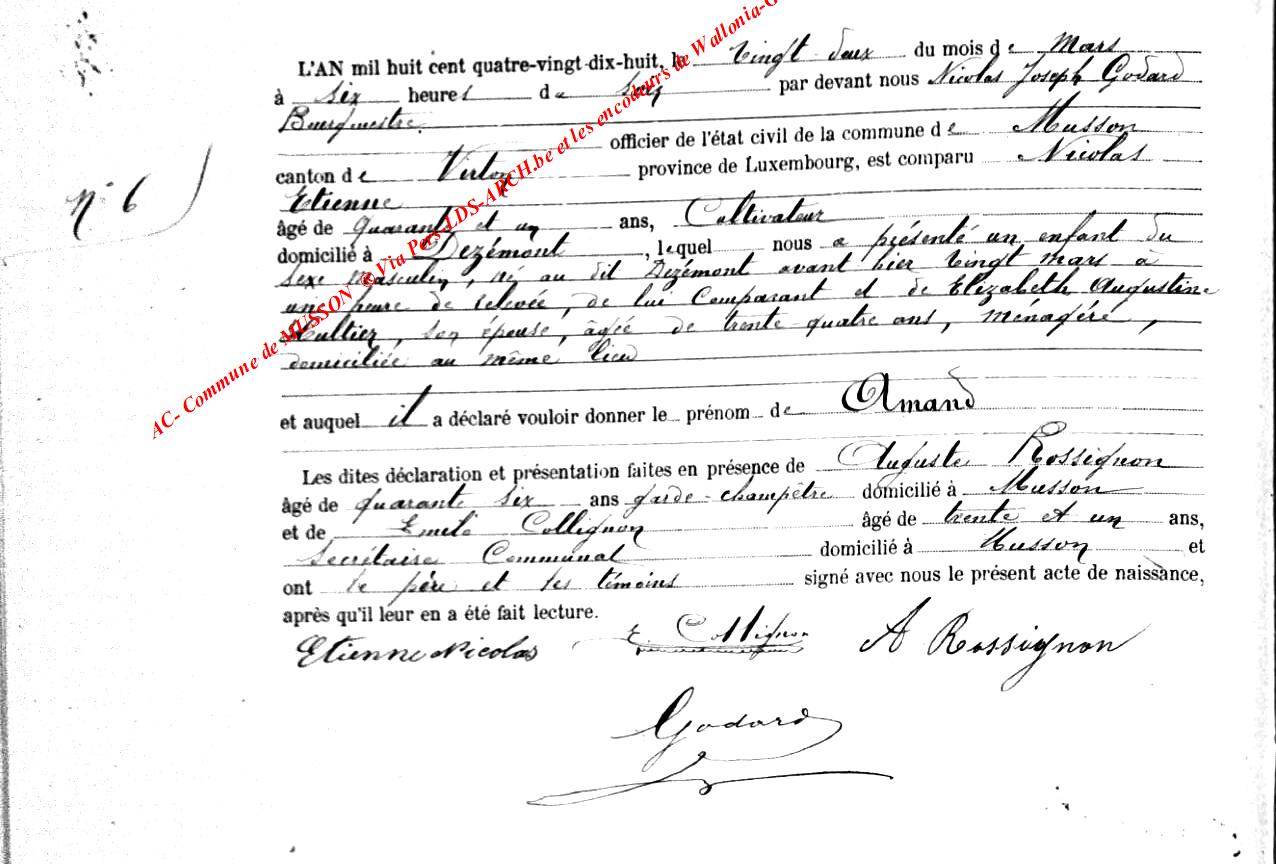 L'AN mil huit cent quatre-vingt-dix-huit, le vingt deux du mois de Mars
à six heures de par devant nous Nicolas Joseph Godard
Bourgmestre.
officier de l'état civil de la commune de Musson
canton de Virton province de Luxembourg, est comparu Nicolas
Etienne
âgé de quarante et un ans, Cultivateur
domicilié à Dezémont, lequel nous a présenté un enfant du
sexe masculin, né au dit Dezémont avant hier vingt mars à
une heure de relevée, de lui Comparant et de Elizabeth Augustine
son épouse, âgée de trente-quatre ans, ménagère,
domiciliée au même lieu
et auquel il a déclaré vouloir donner le prénom de Amand
Les dites déclaration et présentation faites en présence de Auguste Rossignon
âgé de quarante six ans garde-champêtre domicilié à Musson
et de Emile Collignon âgé de trente et un ans,
Secrétaire Communal domicilié à Musson et
ont le père et les témoins signé avec nous le présent acte de naissance,
après qu'il leur en a été fait lecture.
Etienne Nicolas E. Collignon A Rossignon
Godard
N° 6
AC- Commune de MUSSON © Via Pers-LDS-ARCH.be et les encodeurs de Wallonia-G